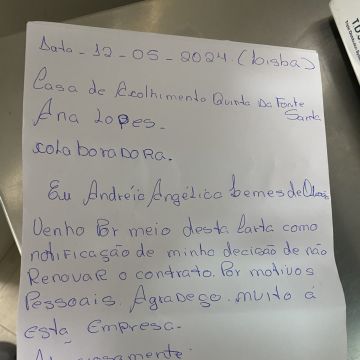 Data - 12 - 05 - 2024 (lisba)
Casa de Acolhimento Quinta Da Fonte
Santa
Ana Lopes.
colaboradora.
Eu Andréia Angélica Lemes de
Venho Por meio desta Carta como
notificação de minha decisão de não
Renovar o contrato. Por motivos
Pessoais. Agradeço muito á
esta Empresa.